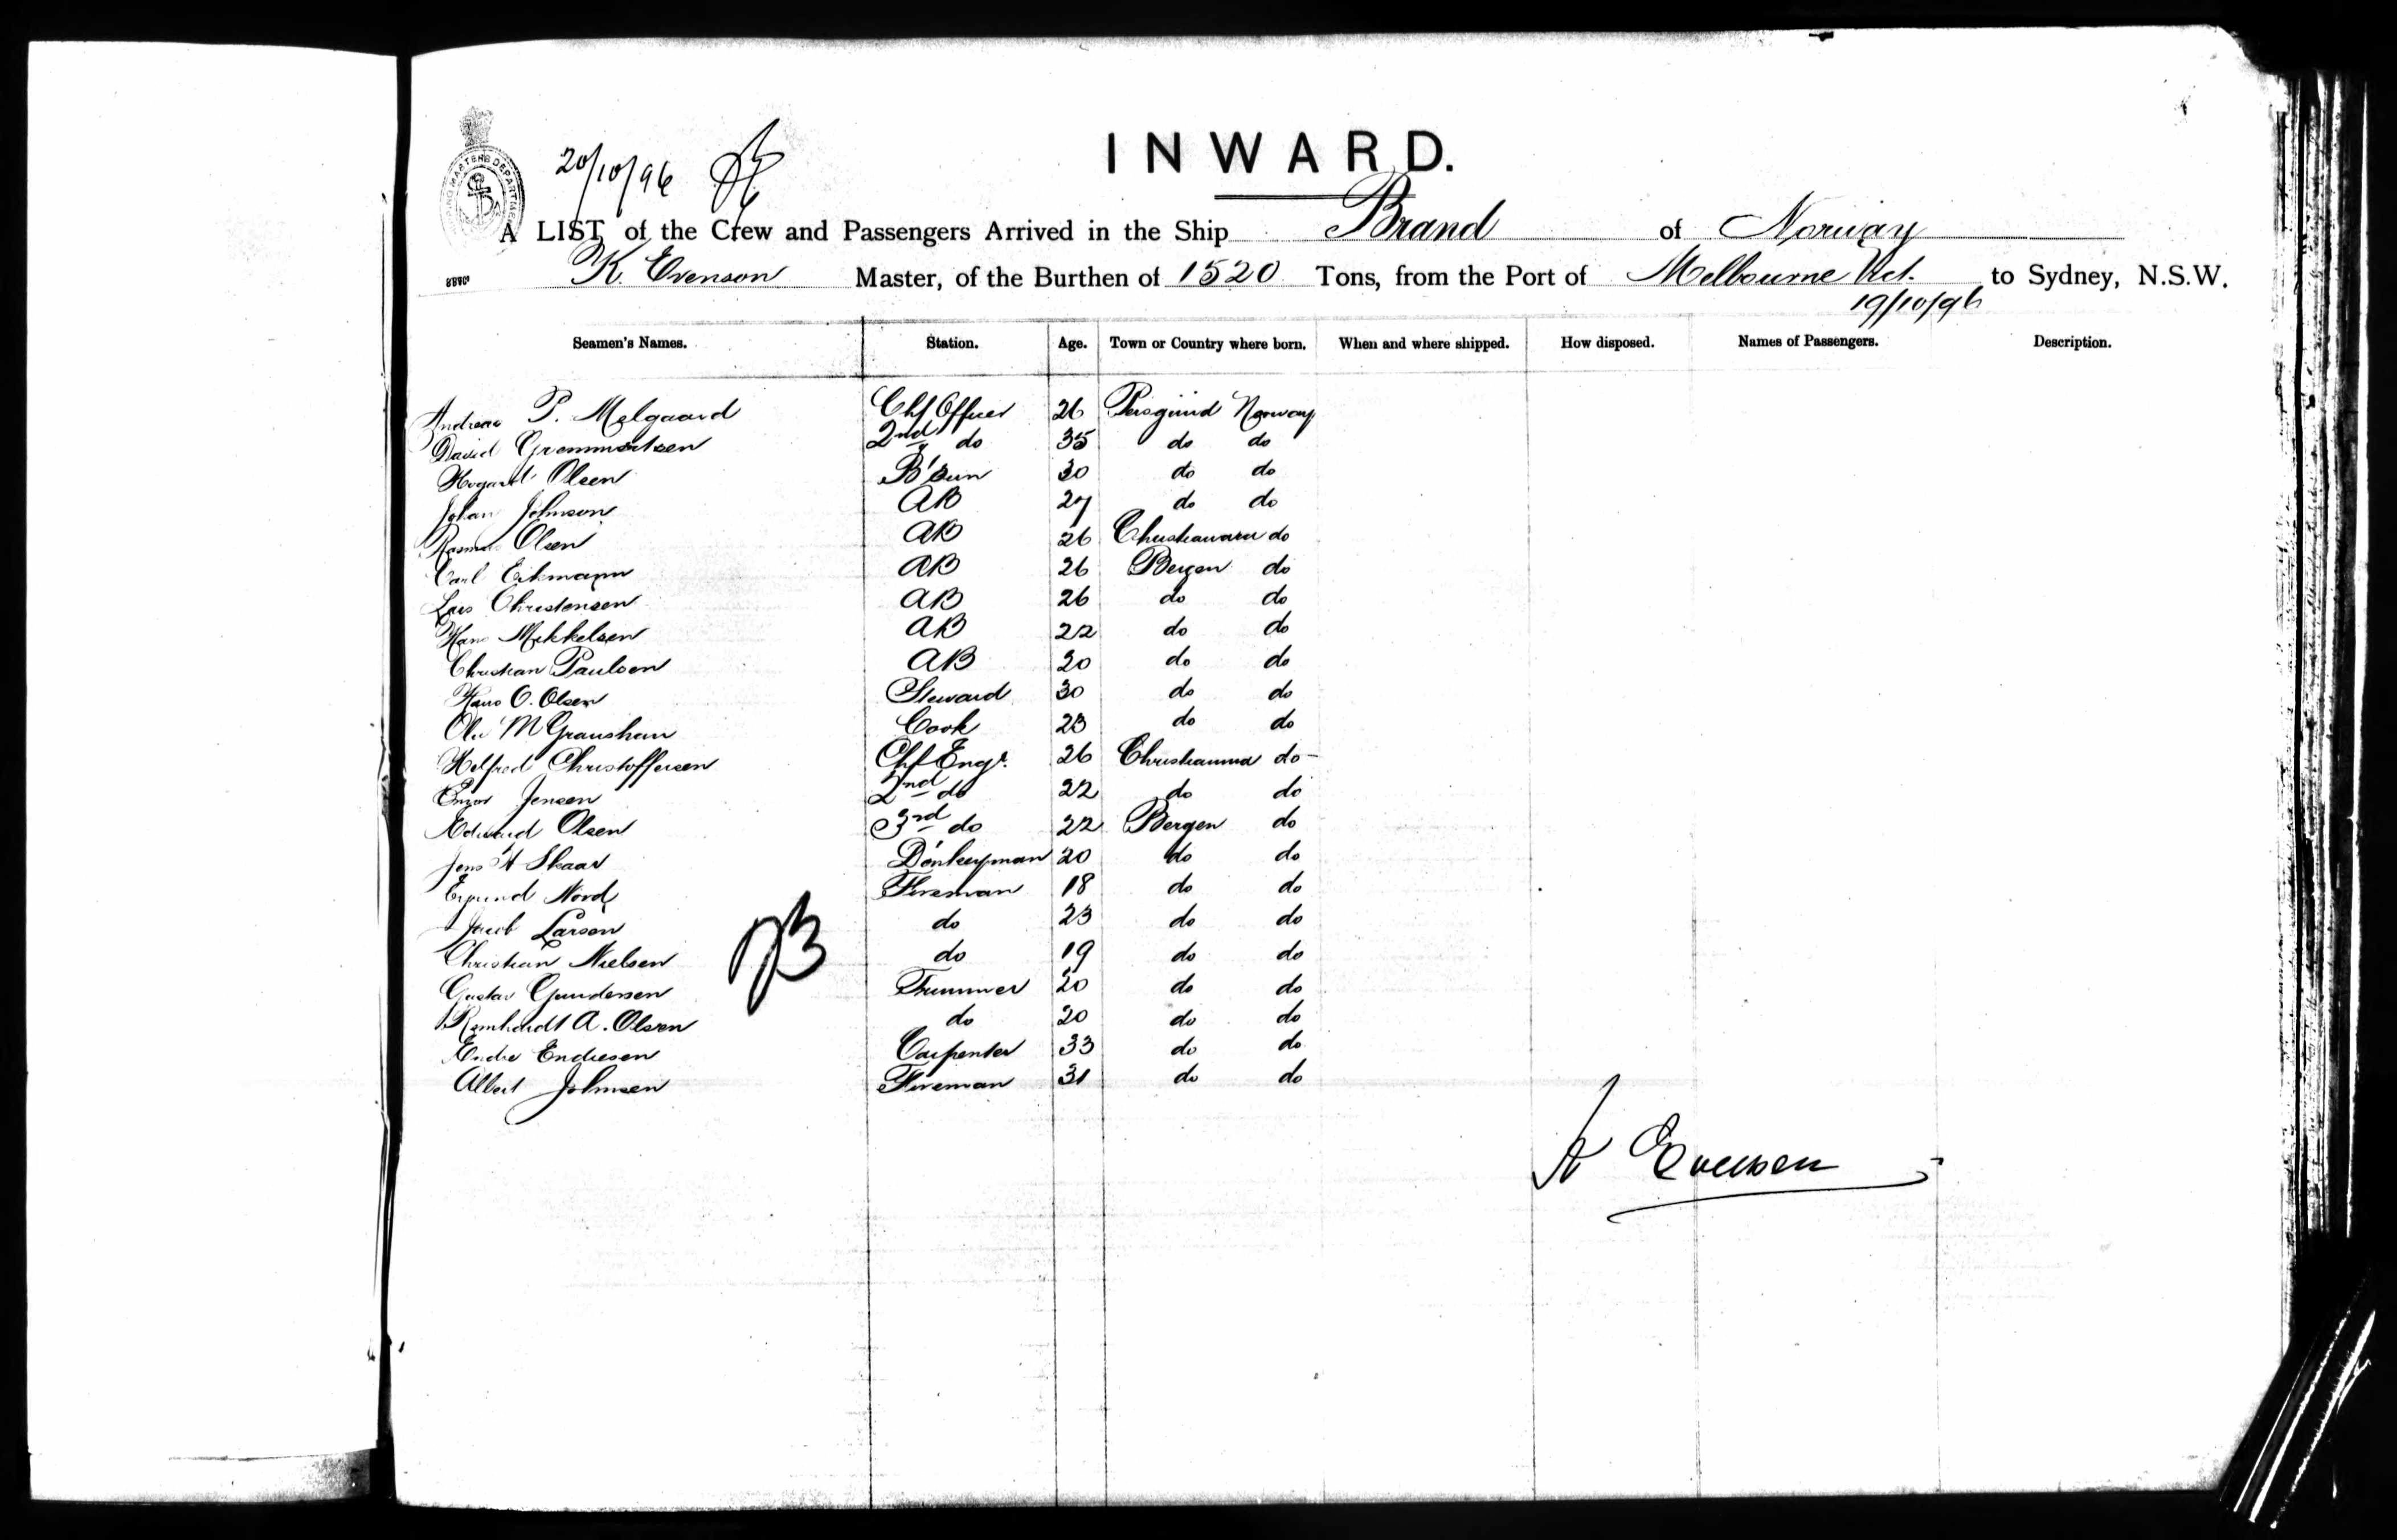 INWARD.
20/10/96
A LIST of the Crew and Passengers Arrived in the Ship Brand of Norway
K. Evenson Master, of the Burthen of 1520 Tons, from the Port of Melbourne Vict. to Sydney, N.S.W.
19/10/96
Seamen's Names. Station. Age. Town or Country where born. When and where shipped. How disposed. Names of Passengers. Description.
Andreas P. Melgaard Chf Officer 26 Norway
David 2nd do 35 do do
Olsen B'sun 30 do do
Johan Johnson AB 27 do do
Rasmus Olsen AB 26 do
Carl Eikmann AB 26 Bergen do
Lars Christensen AB 26 do do
Hans Mikkelsen AB 22 do do
Christian Paulsen AB 20 do do
Hans O. Olsen Steward 30 do do
Ole M Cook 23 do do
Christoffersen Chf Engr. 26 Christiania do
Jensen 2nd do 22 do do
Edward Olsen 3rd do 22 Bergen do
Jens A Skaar Donkeyman 20 do do
Nord Fireman 18 do do
Jacob Larsen do 23 do do
Christian Nielsen do 19 do do
Gustav Gundersen Trimmer 20 do do
Reinhardt A. Olsen do 20 do do
Endre Endresen Carpenter 33 do do
Albert Johnsen Fireman 31 do do
K Evensen